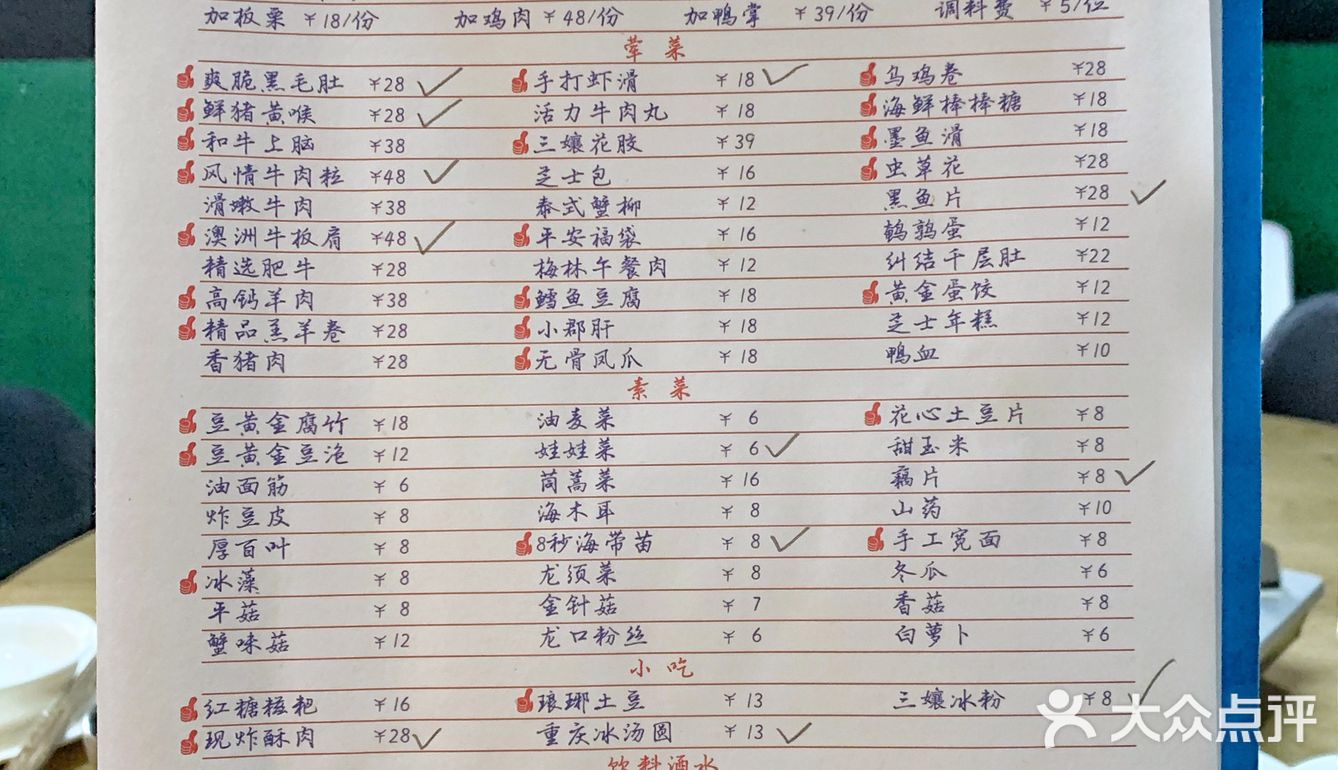 加板栗 ￥18/份 加鸡肉 ￥48/份 加鸭掌 ￥39/份 调料费 ￥5/位
荤菜
爽脆黑毛肚 ￥28 手打虾滑 ￥18 乌鸡卷 ￥28
鲜猪黄喉 ￥28 活力牛肉丸 ￥18 海鲜棒棒糖 ￥18
和牛上脑 ￥38 三孃花胶 ￥39 墨鱼滑 ￥18
风情牛肉粒 ￥48 芝士包 ￥16 虫草花 ￥28
滑嫩牛肉 ￥38 泰式蟹柳 ￥12 黑鱼片 ￥28
澳洲牛板腱 ￥48 平安福袋 ￥16 鹌鹑蛋 ￥12
精选肥牛 ￥28 梅林午餐肉 ￥12 纠结千层肚 ￥22
高钙羊肉 ￥38 鳕鱼豆腐 ￥18 黄金蛋饺 ￥12
精品羔羊卷 ￥28 小郡肝 ￥18 芝士年糕 ￥12
香猪肉 ￥28 无骨凤爪 ￥18 鸭血 ￥10
素菜
豆黄金腐竹 ￥18 油麦菜 ￥6 花心土豆片 ￥8
豆黄金豆泡 ￥12 娃娃菜 ￥6 甜玉米 ￥8
油面筋 ￥6 茼蒿菜 ￥16 藕片 ￥8
炸豆皮 ￥8 海木耳 ￥8 山药 ￥10
厚百叶 ￥8 8秒海带苗 ￥8 手工宽面 ￥8
冰藻 ￥8 龙须菜 ￥8 冬瓜 ￥6
平菇 ￥8 金针菇 ￥7 香菇 ￥8
蟹味菇 ￥12 龙口粉丝 ￥6 白萝卜 ￥6
小吃
红糖糍粑 ￥16 琅琊土豆 ￥13 三孃冰粉 ￥8
现炸酥肉 ￥28 重庆冰汤圆 ￥13
饮料酒水
大众点评